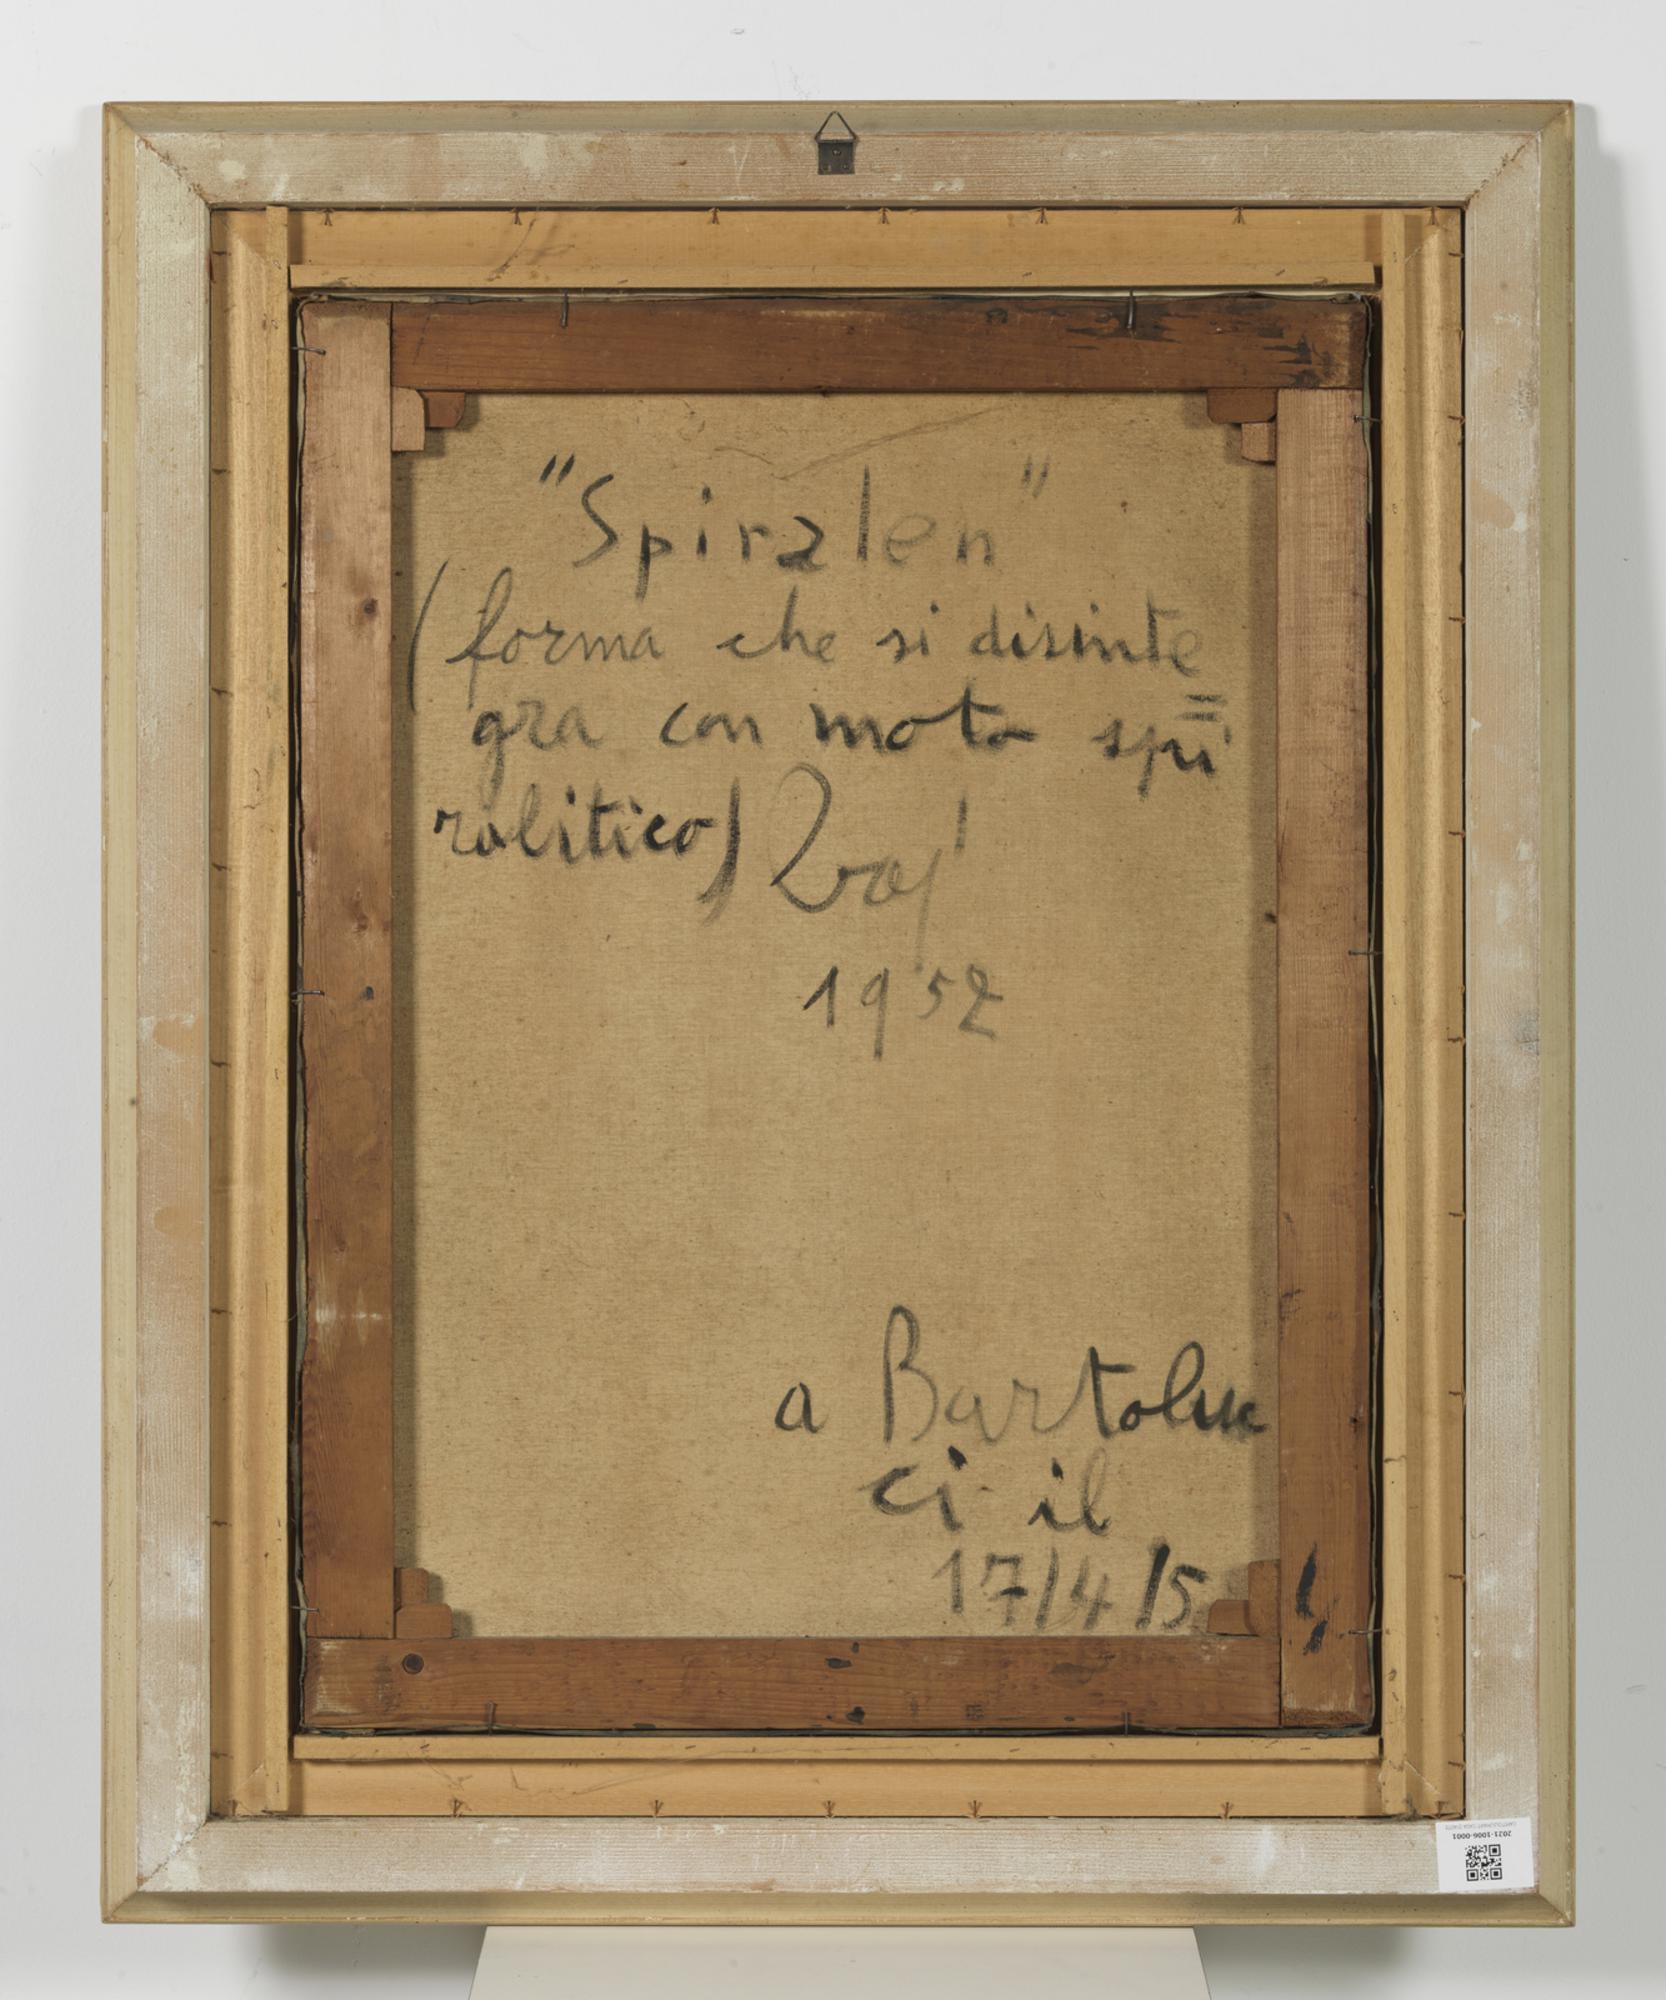 "Spiralen"
(forma che si disinte
gra con moto spi=
ralitico)
1952
a Bartoluc
ci il
17/4/5
2021-1006-0001